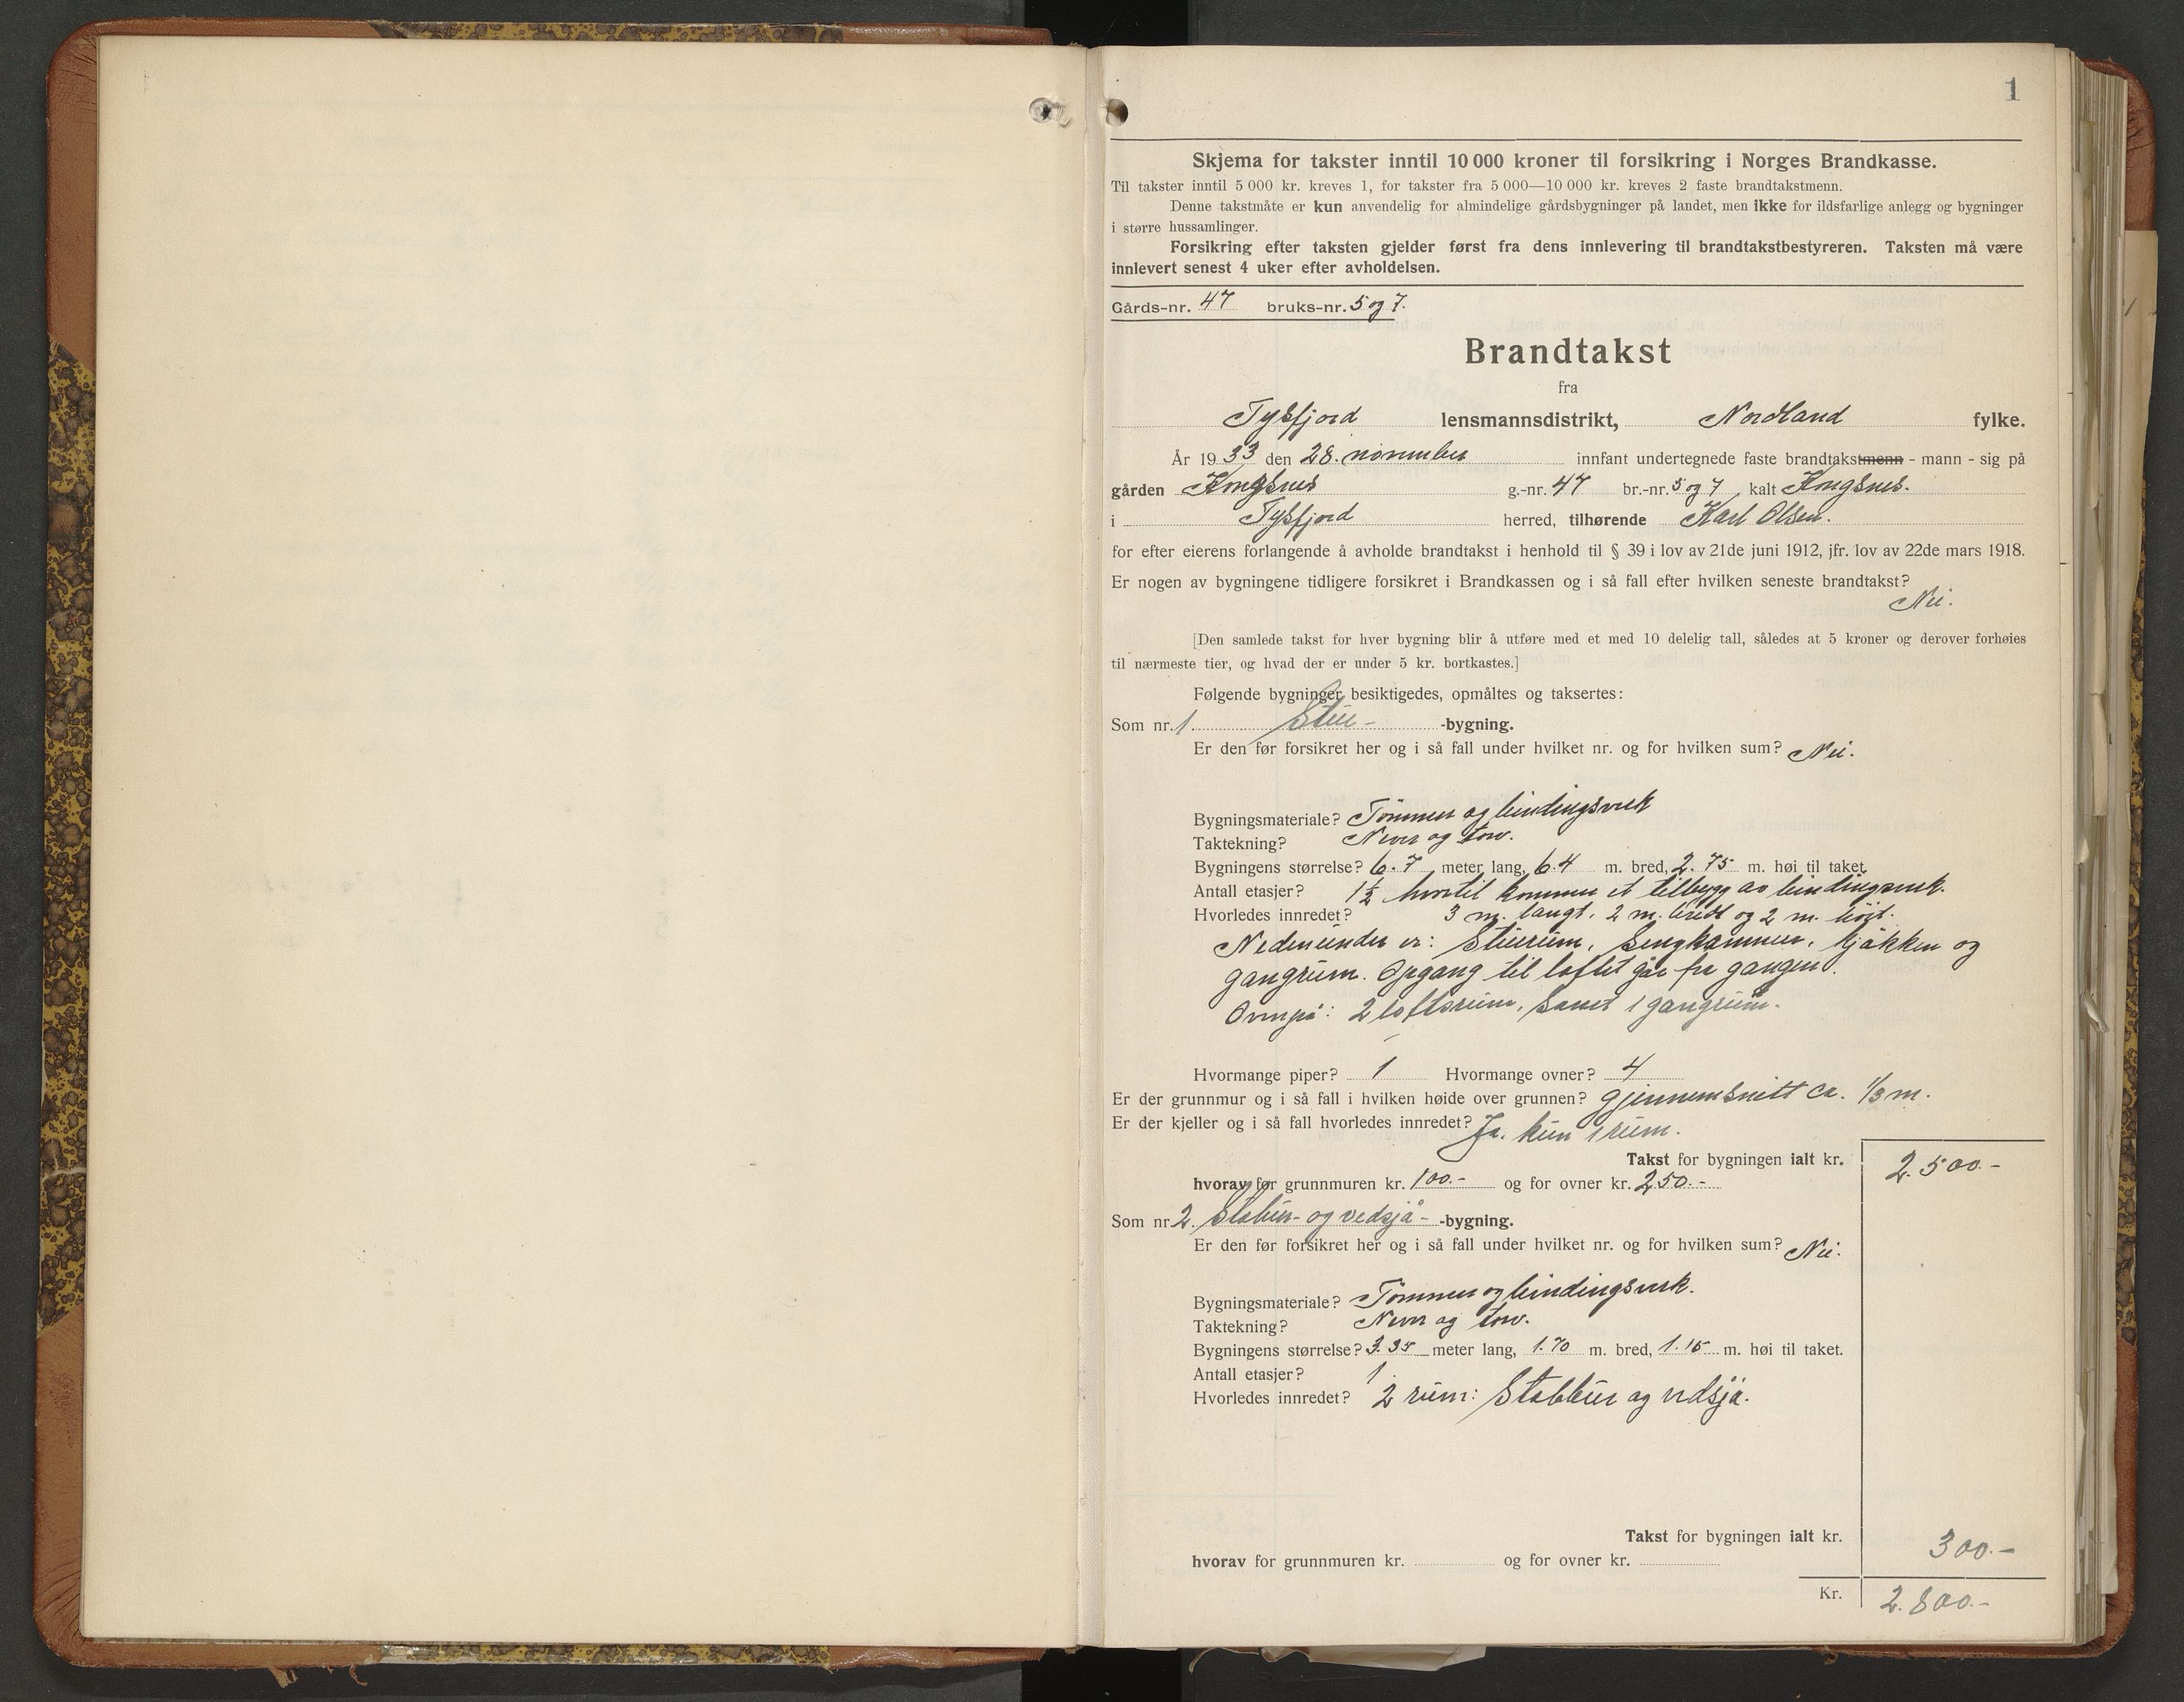 1
Skjema for takster inntil 10 000 kroner til forsikring i Norges Brandkasse.
Til takster inntil 5 000 kr. kreves 1, for takster fra 5 000—10 000 kr. kreves 2 faste brandtakstmenn.
Denne takstmåte er kun anvendelig for almindelige gårdsbygninger på landet, men ikke for ildsfarlige anlegg og bygninger
i større hussamlinger.
Forsikring efter taksten gjelder først fra dens innlevering til brandtakstbestyreren. Taksten må være
innlevert senest 4 uker efter avholdelsen.
Gårds-nr. 47 bruks-nr. 5 og 7.
Brandtakst
fra
Tysfjord lensmannsdistrikt, Nordland fylke.
År 1933 den 28. november innfant undertegnede faste brandtakstmenn - mann - sig på
gården Kongsnes g.-nr. 47 br.-nr. 5 og 7 kalt Kongsnes.
i Tysfjord herred, tilhørende Karl Olsen.
for efter eierens forlangende å avholde brandtakst i henhold til § 39 i lov av 21de juni 1912, jfr. lov av 22de mars 1918.
Er nogen av bygningene tidligere forsikret i Brandkassen og i så fall efter hvilken seneste brandtakst?
Nei.
[Den samlede takst for hver bygning blir å utføre med et med 10 delelig tall, således at 5 kroner og derover forhøies
til nærmeste tier, og hvad der er under 5 kr. bortkastes.]
Følgende bygninger besiktigedes, opmåltes og taksertes:
Som nr. 1. Stue- -bygning.
Er den før forsikret her og i så fall under hvilket nr. og for hvilken sum? Nei.
Bygningsmateriale? Tømmer og bindingsverk
Taktekning? Never og torv.
Bygningens størrelse? 6.7 meter lang, 6.4 m. bred, 2.75 m. høi til taket.
Antall etasjer? 1½ hvortil kommer et tilbygg av bindingsverk.
Hvorledes innredet? 3 m. langt, 2 m. bredt og 2 m. høit.
Nedenunder er: Stuerum, Sengkammer, kjøkken og
gangrum. Opgang til loftet går fra gangen.
Ovenpå: 2 loftsrum, samt 1 gangrum.
Hvormange piper? 1 Hvormange ovner? 4
Er der grunnmur og i så fall i hvilken høide over grunnen? Gjennemsnitt ca. 1/3 m.
Er der kjeller og i så fall hvorledes innredet? Ja. kun 1 rum.
Takst for bygningen ialt kr. 2.500.-
hvorav for grunnmuren kr. 100.- og for ovner kr. 250.-
Som nr. 2. Stabur- og vedsjå- -bygning.
Er den før forsikret her og i så fall under hvilket nr. og for hvilken sum? Nei.
Bygningsmateriale? Tømmer og bindingsverk.
Taktekning? Never og torv.
Bygningens størrelse? 3.35 meter lang, 1.70 m. bred, 1.15 m. høi til taket.
Antall etasjer? 1
Hvorledes innredet? 2 rum: Stabbur og vedsjå.
Takst for bygningen ialt kr. 300.-
hvorav for grunnmuren kr. og for ovner kr.
Kr. 2.800.-